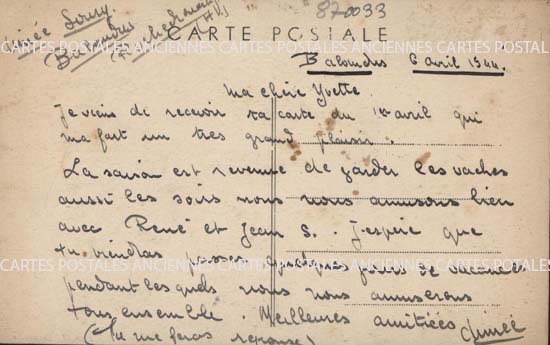 870033
CARTE POSTALE
CARTES POSTALES ANCIENNES CARTES POSTALES ANCIENNES CARTES POSTALES
6 avril 1944.
Ma chère Yvette.
Je viens de recevoir ta carte du 1er avril qui
ma fait un très grand plaisir.
La saison est revenue de garder les vaches
aussi les soirs nous nous amusons bien
avec René et Jean S. . J'espère que
tu viendras passer quelques jours de vacances
CARTES POSTALES ANCIENNES CARTES POSTALES ANCIENNES CARTES POSTALES
pendant les quels nous nous amuserons
tous ensemble. Meilleures amitiées Aimée
(Tu me feras réponse)